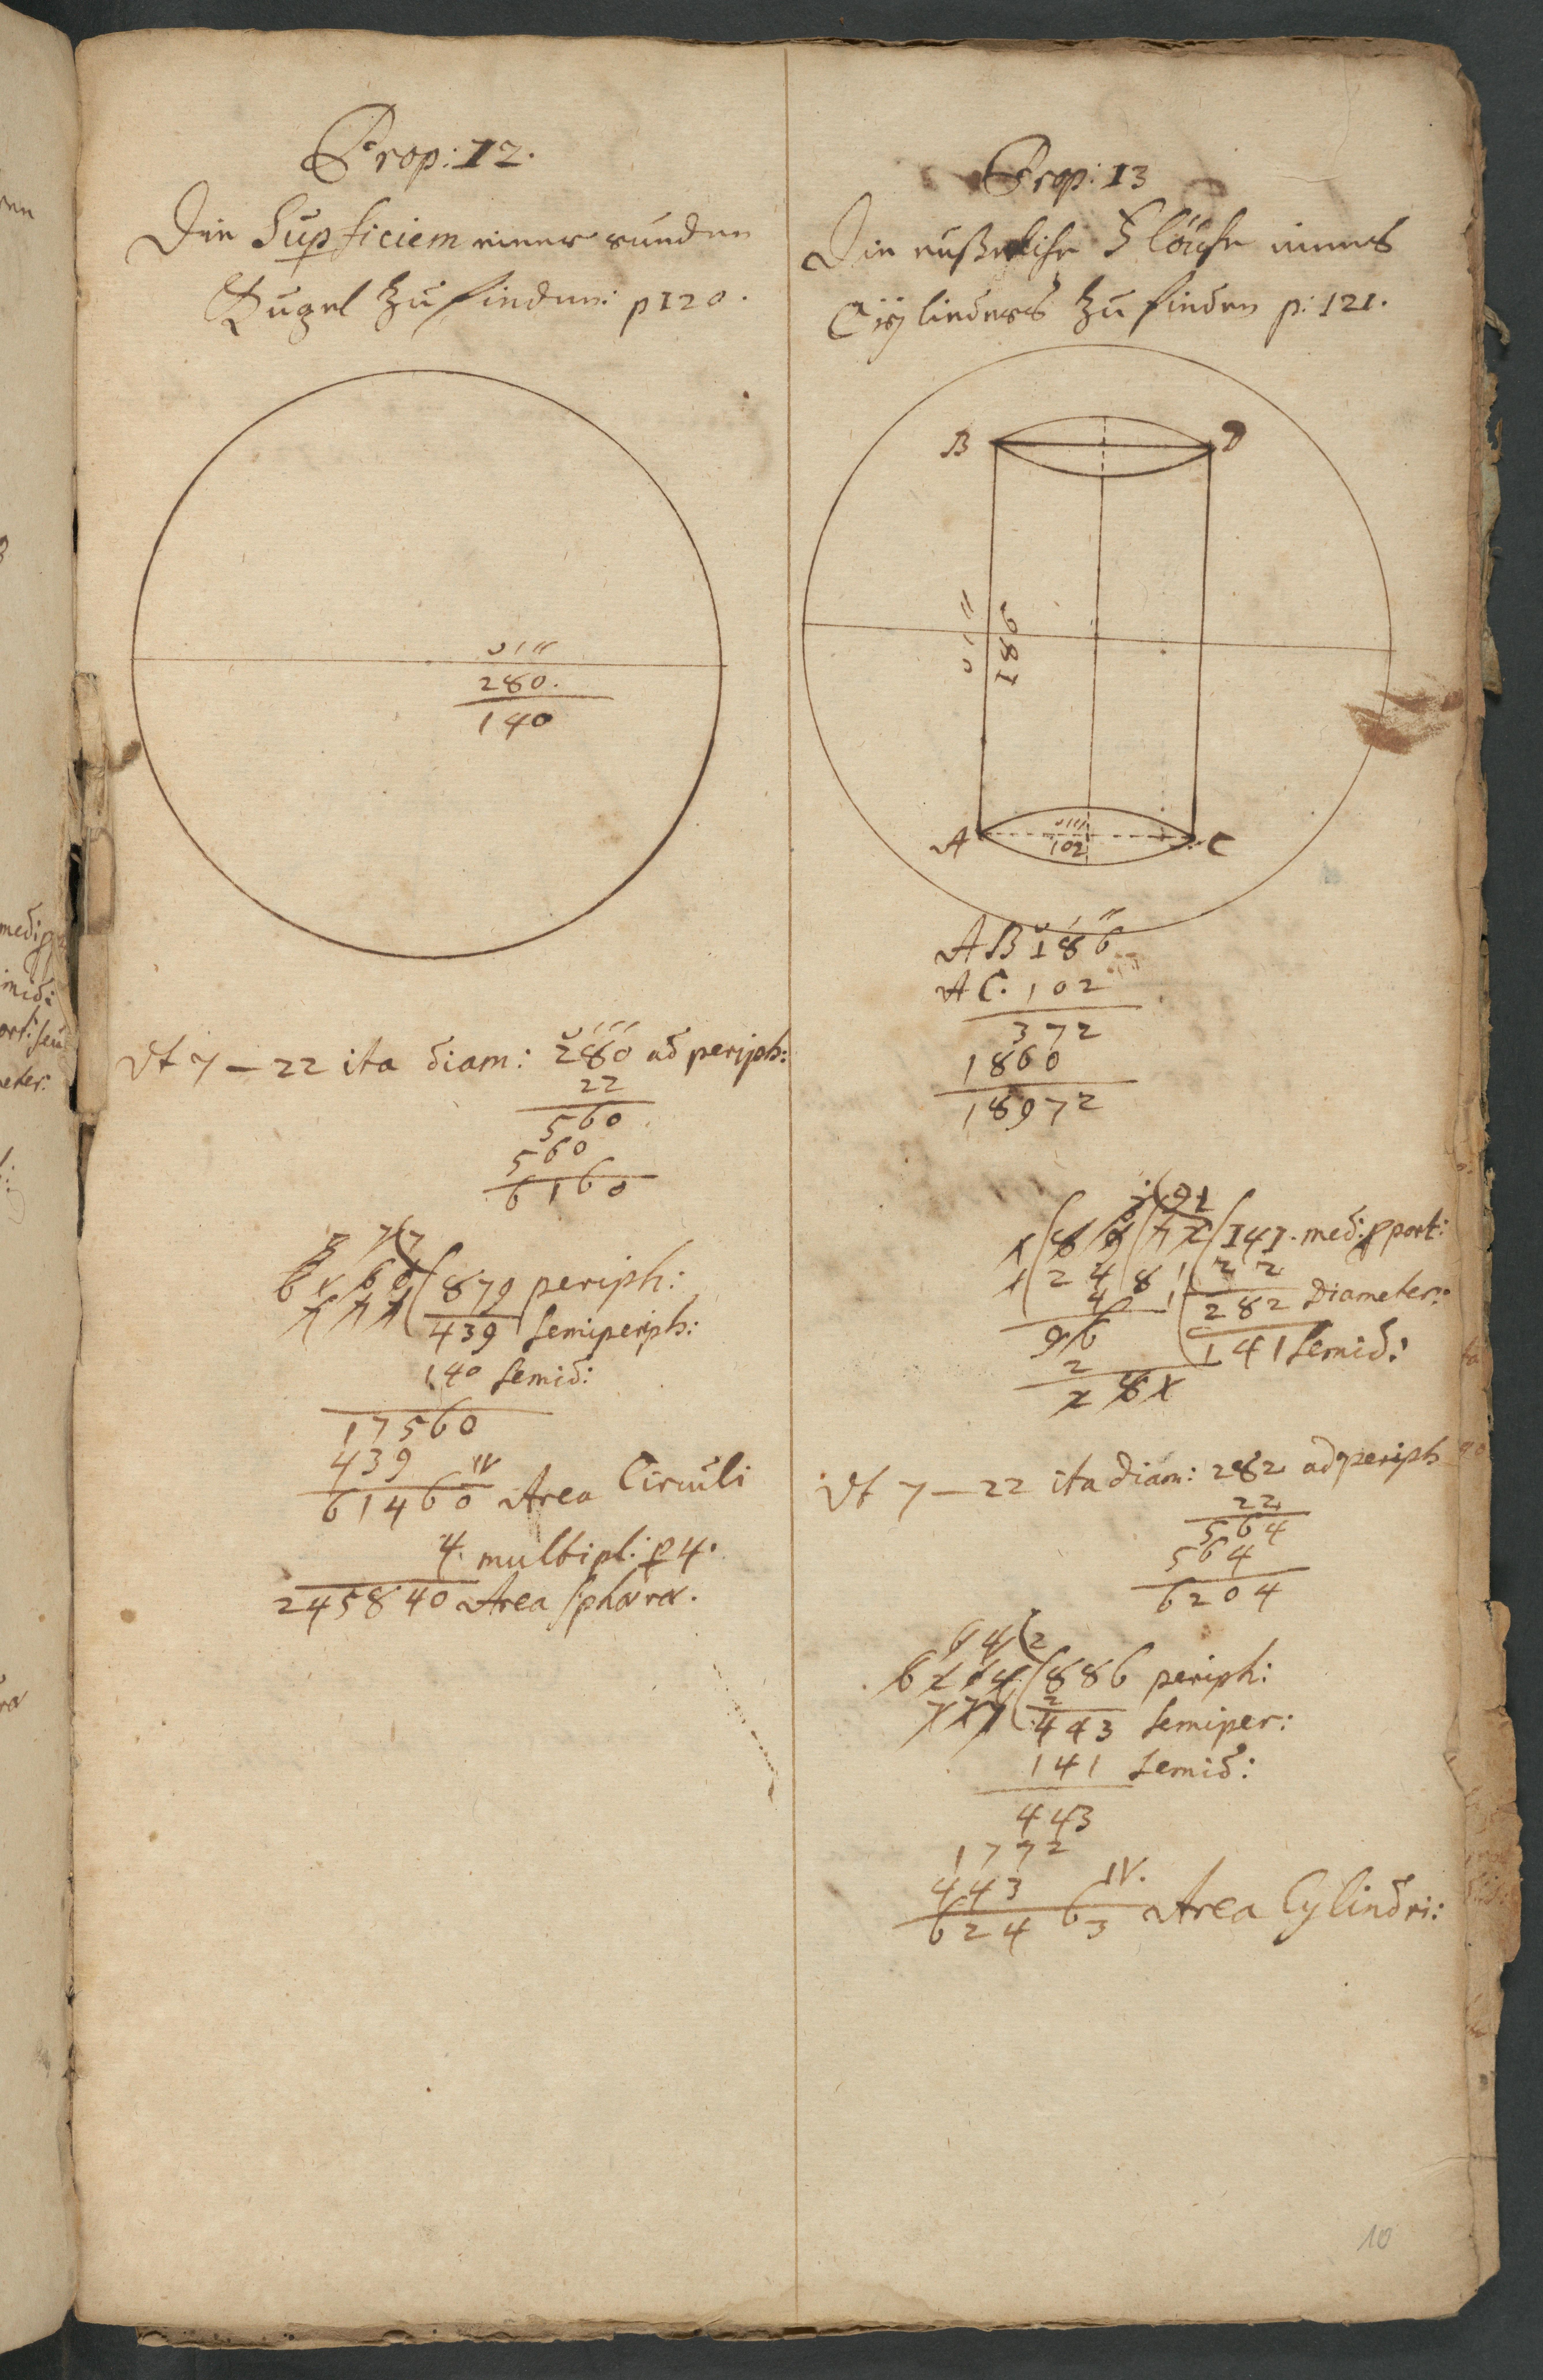 Prop: 12.
Die Supficiem einer runden
Kugel zu finden: p 120.
280.
140
Vt 7 — 22 ita diam: 280 ad periph:
22
560
560
6160
6160 ( 879 periph:
777 439 semiperiph:
140 semid:
17560
439 IV
61460 Area Circuli
4 multipl: p 4.
245840 Area sphæræ.
Prop: 13
Die eußerliche Fläche eines
Cÿlinders zu finden p: 121.
B D
186
A 102 C
AB 186
AC. 102
372
1860
18972
1(89(72(141. med: pport:
1 2 4 8 1 2
4 1 282 Diameter:
96 141 semid:
2
281
Vt 7 — 22 ita diam: 282 ad periph
22
564
564
6204
64(2
6204(886 periph:
777 2
443 semiper:
141 semid:
443
1772
443 IV.
62463 Area Cylindri:
10